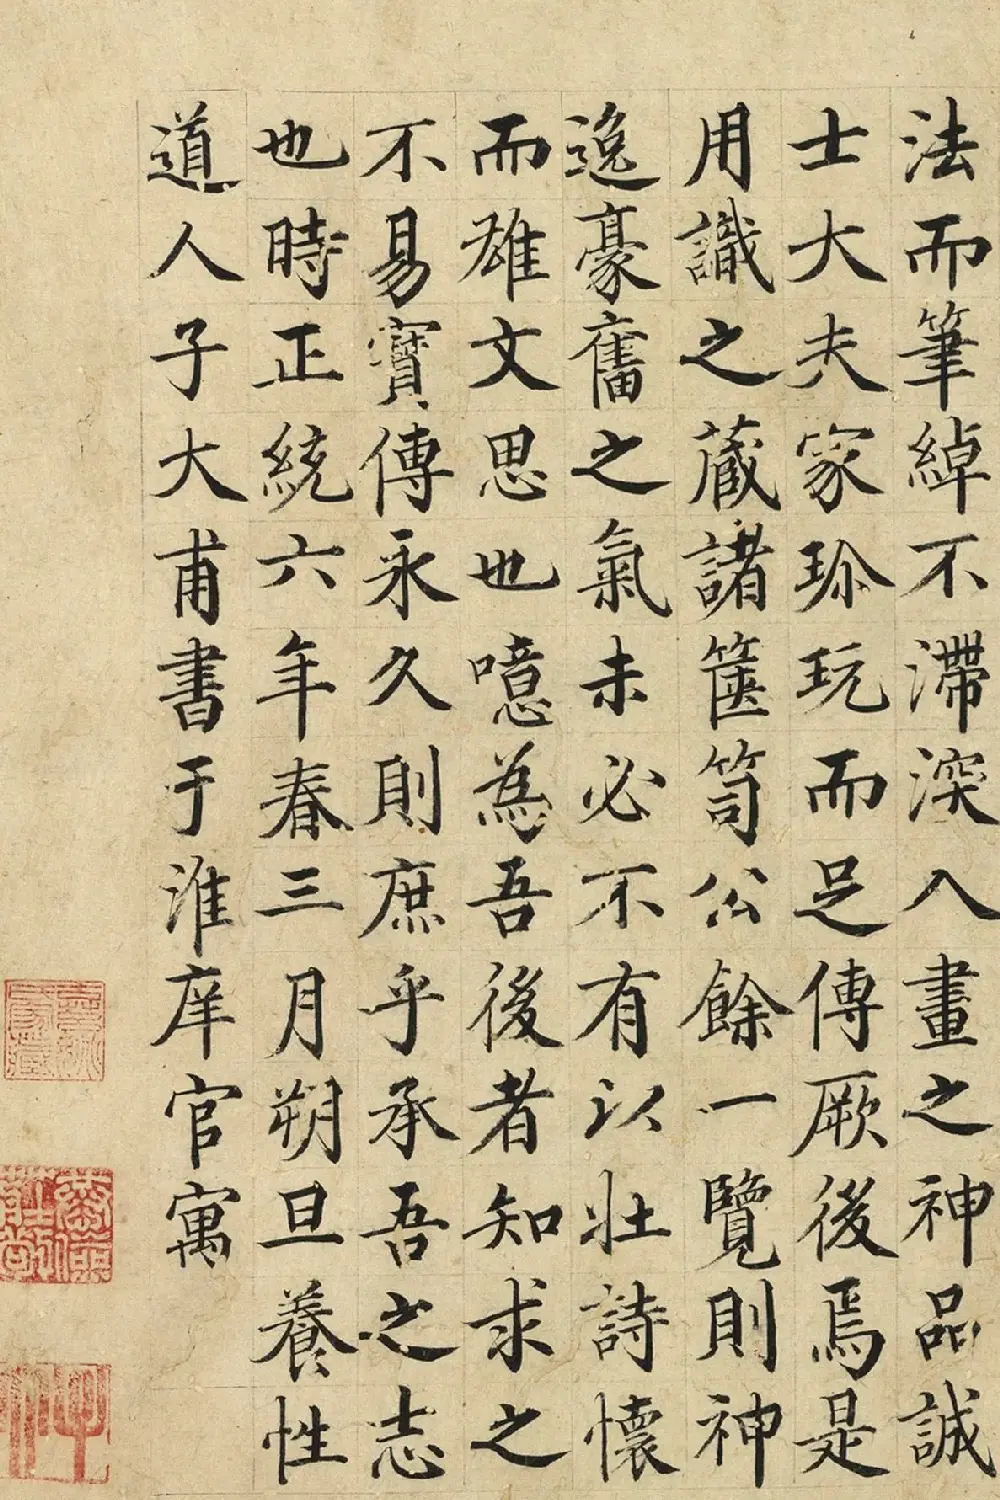 法而筆綽不滯深入畫之神品誠
士大夫家珎玩而足傳厥後焉是
用識之藏諸篋笥公餘一覽則神
逸豪奮之氣未必不有以壯詩懷
而雄文思也噫為吾後者知求之
不易寳傳永久則庶乎承吾之志
也時正統六年春三月朔旦養性
道人子大甫書于淮庠官寓